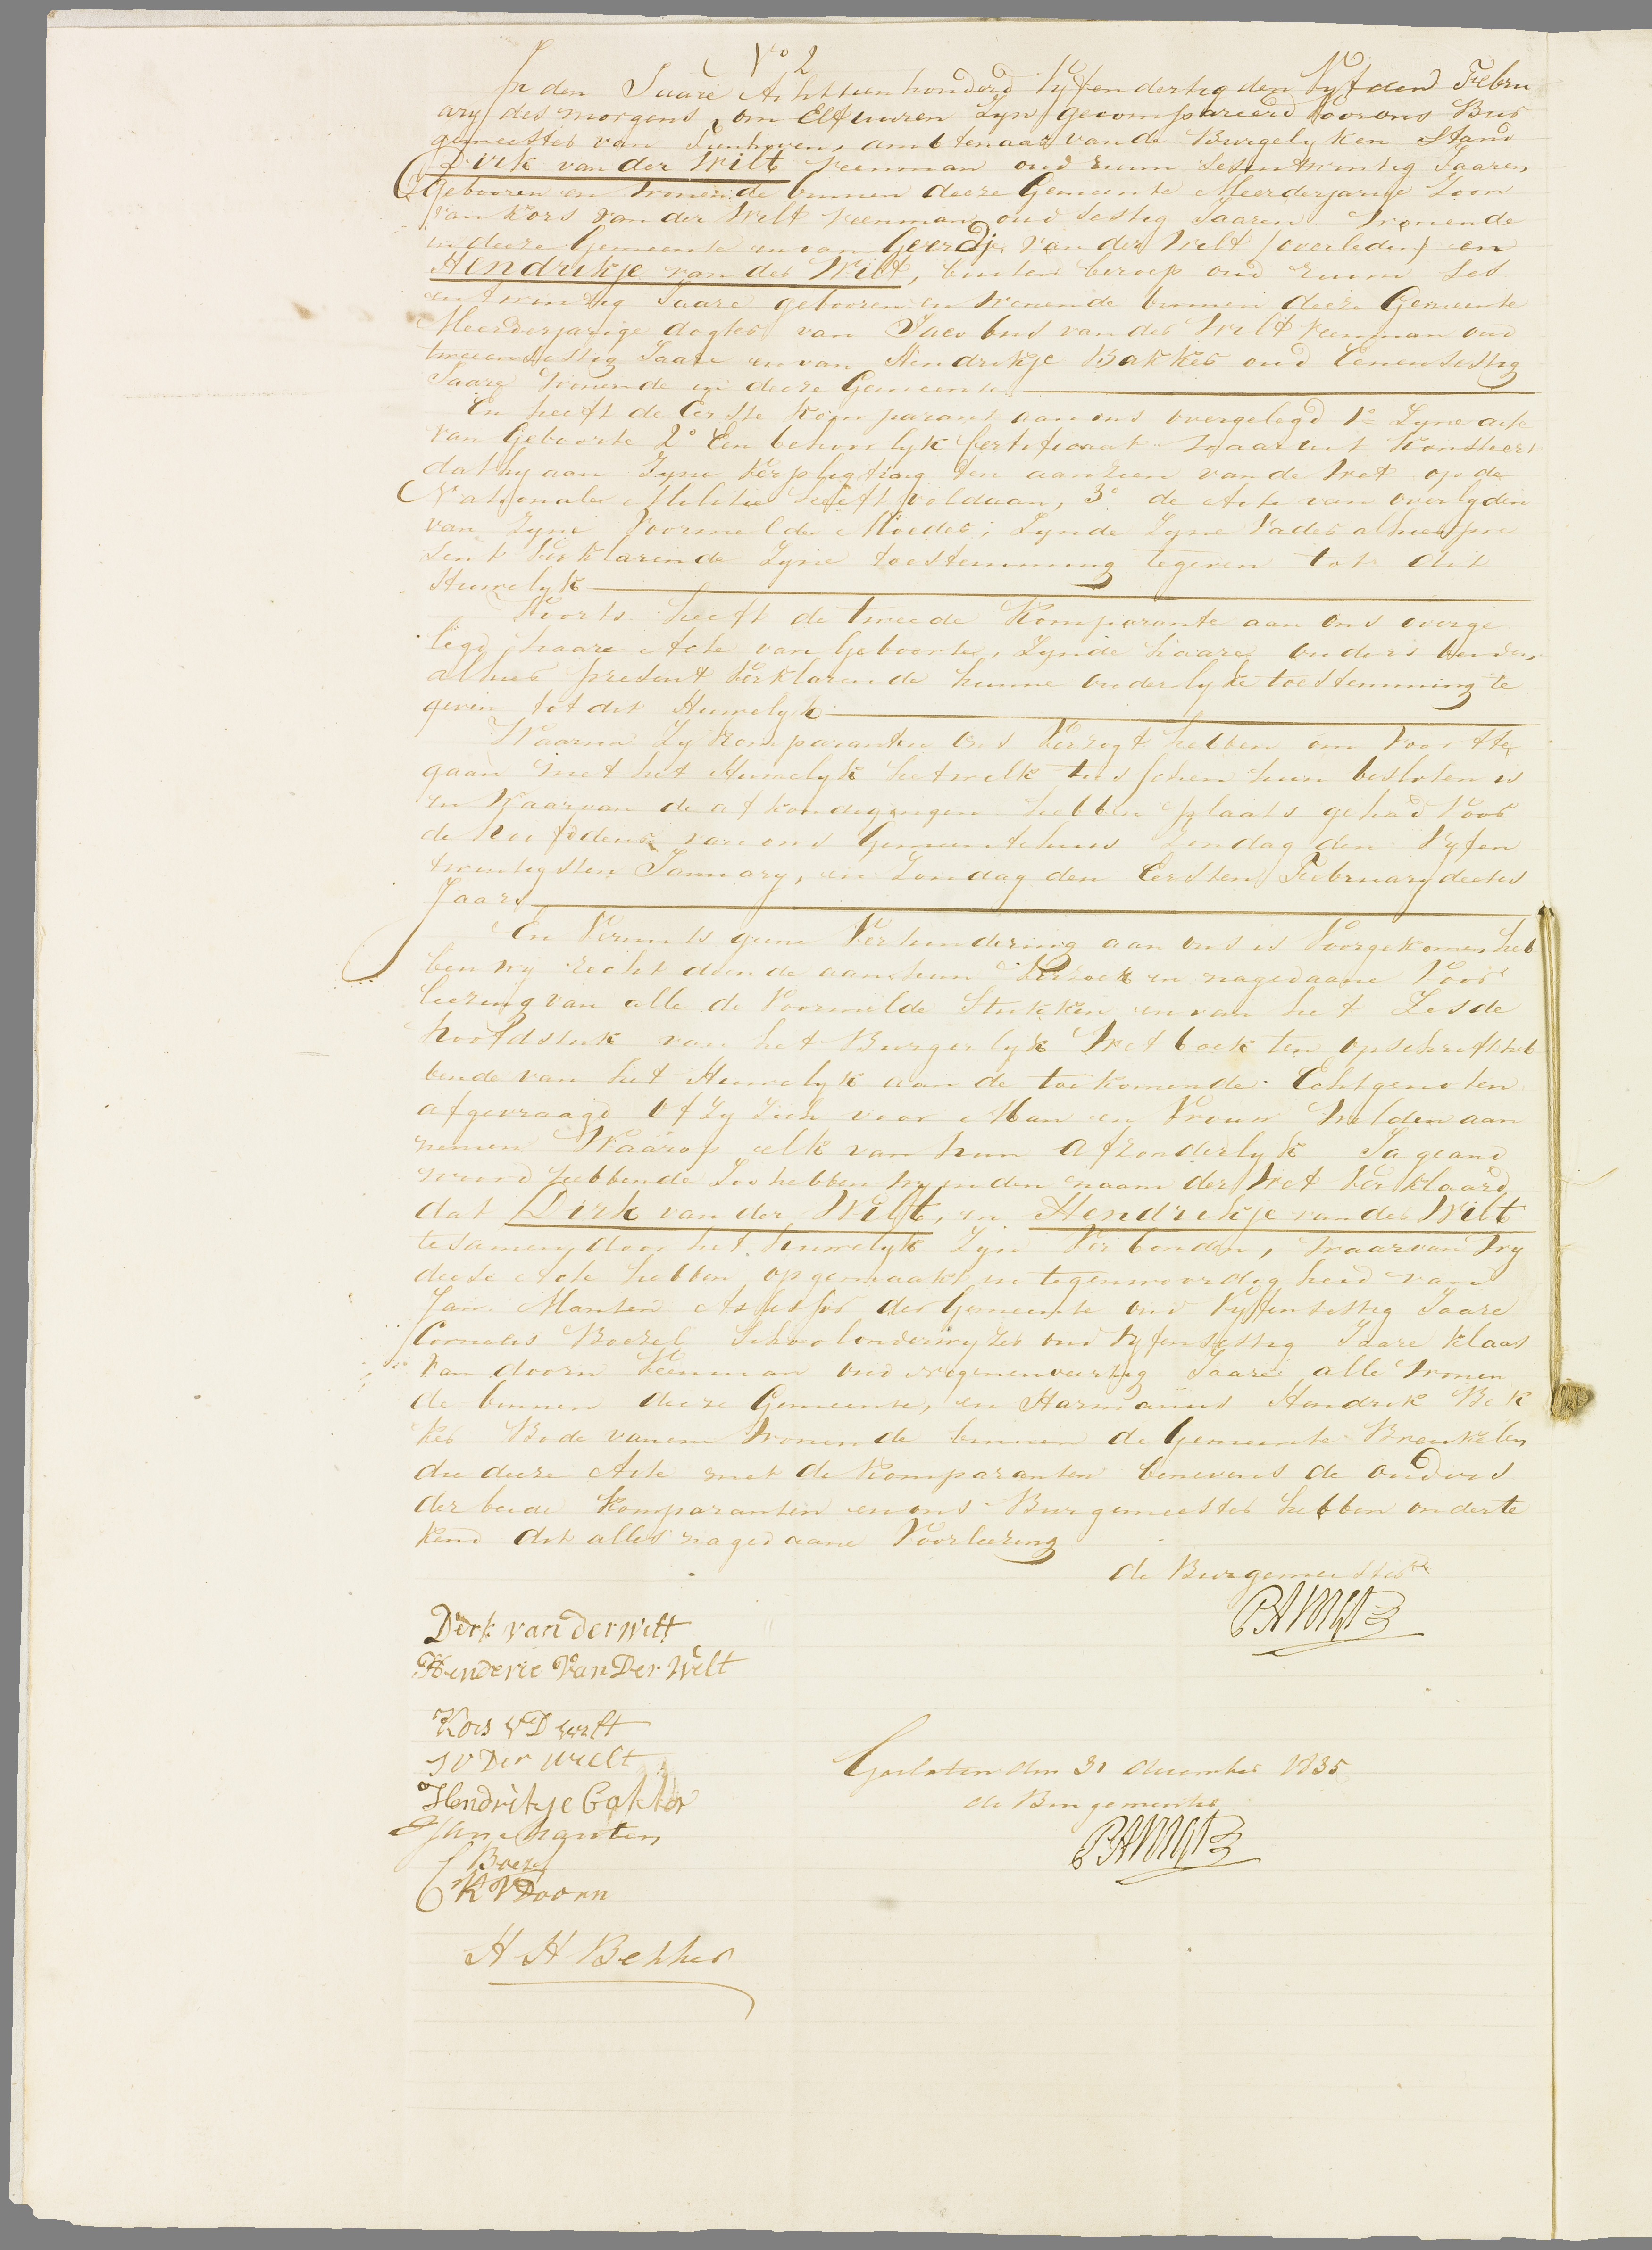 N° 2
In den Jaare Achttien honderd Vyf en dertig den Vyfden Febru
ary des morgens om Elf uuren Zyn gecompareerd Voor ons Bur
gemeester van Tienhoven, ambtenaar van de Burgelyken Stand
Dirk van der Wilt Veenman oud ruim Sesentwintig Jaaren
Gebooren en Wonende binnen deeze Gemeente Meerderjarige Zoon
van Kors van der Wilt Veenman oud Sestig Jaaren Wonende
in deeze Gemeente en van Geerdje van der Wilt (overleden) en
Hendrikje van der Wilt, buiten beroep oud ruim Ses
en twintig Jaare gebooren en Wonende binnen deeze Gemeente
Meerderjarige dogter van Jacobus van der Wilt Veenman oud
tweeensestig Jaare en van Hendrikje Bakker oud Eenensestig
Jaare Wonende in deeze Gemeente
En heeft de Eerste Komparant aan ons overgelegd 1° Zyne acte
van Geboorte 2° Een behoorlyk Certificaat Waaruit Konsteert
dat hy aan Zyne Verpligting ten aanzien van de Wet op de
Nationale Militie heeft voldaan, 3° de Acte van overlyden
van Zyne Voormelde Moeder; Zynde Zyne Vader alhier pre
sent Verklarende Zyne toestemming tegeven tot dit
Huwelyk
Voorts heeft de tweede Komparante aan ons overge
legd haare Acte van Geboorte, Zynde haare ouders beiden
alhier present Verklarende hunne ouderlyke toestemming te
geven tot dit Huwelyk
Waarna Zy Komparanten ons Verzogt hebben om Voort te
gaan met het Huwelyk hetwelk tusschen hun besloten is
en Waarvan de afkondigingen hebben plaats gehad Voor
de Hoofddeur van ons Gemeentehuis Zondag den Vyfen
twintigsten January, en Zondag den Eersten February deeses
Jaars
En Vermits geene Verhindering aan ons is Voorgekomen heb
ben wy recht doende aan hun Verzoek en nagedaane Voor
leezing van alle de Voormelde Stukken en van het Zesde
Hoofdstuk van het Burgerlyk Wetboek ten opschrift heb
bende van het Huwelyk aan de toekomende Echtgenoten
afgevraagd of Zy Zich voor Man en Vrouw Wilden aan
nemen Waarop elk van hun afzonderlyk Ja geand
woord hebbende Zoo hebben wy in den naam der Wet Verklaard
dat Dirk van der Wilt, en Hendrikje van der Wilt
te samen door het huwelyk Zyn Verbonden, Waarvan Wy
deese Acte hebben opgemaakt in tegenwoordigheid van
Jan Manten Assessor der Gemeente oud Vyfensestig Jaare
Cornelis Boezel Schoolonderwyzer oud Vyfensestig Jaare Klaas
van doorn Veenman oud negenenveertig Jaare alle Wonen
de binnen deeze Gemeente, en Harmanus Hendrik Bek
ker Bode vanens Wonende binnen de Gemeente Breukelen
die deeze Acte met de Komparanten benevens de ouders
der beide Komparanten en ons Burgemeester hebben onderte
kend dit alles nagedaane Voorleezing
de Burgemeester
Derk van der wilt
Henderic Van Der Wilt
Kors V D wilt
J V Der Wilt
Hendrikje Bakker
Jan Manten
C Boezel
K V Doorn
H H Bekker
Gesloten den 31 december 1835
de Burgemeester